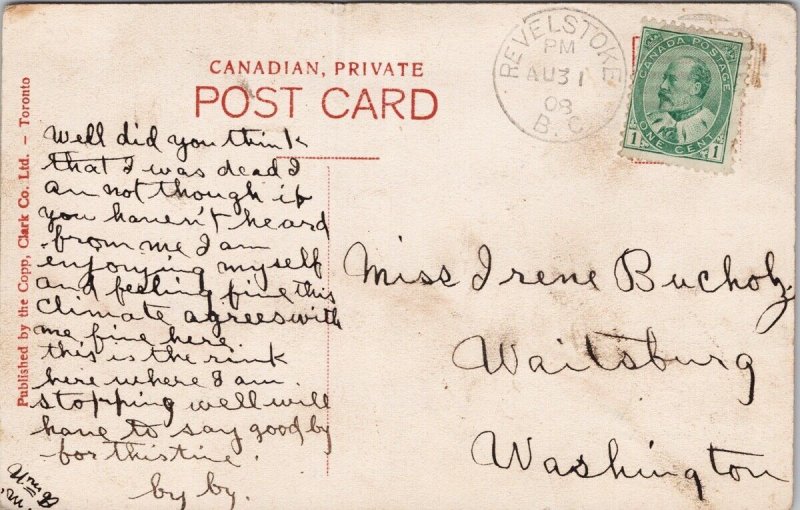 CANADIAN, PRIVATE
POST CARD
REVELSTOKE
PM
AU 31
08
B.C.
CANADA POSTAGE
1 ONE CENT 1
Published by the Copp, Clark Co. Ltd. - Toronto
Well did you think
that I was dead I
am not though if
you haven't heard
from me I am
enjoying myself
and feeling fine this
climate agrees with
me fine here.
this is the rink
here where I am
stopping well will
have to say good by
for this time.
by by.
Miss Irene Bucholz
Waitsburg
Washington